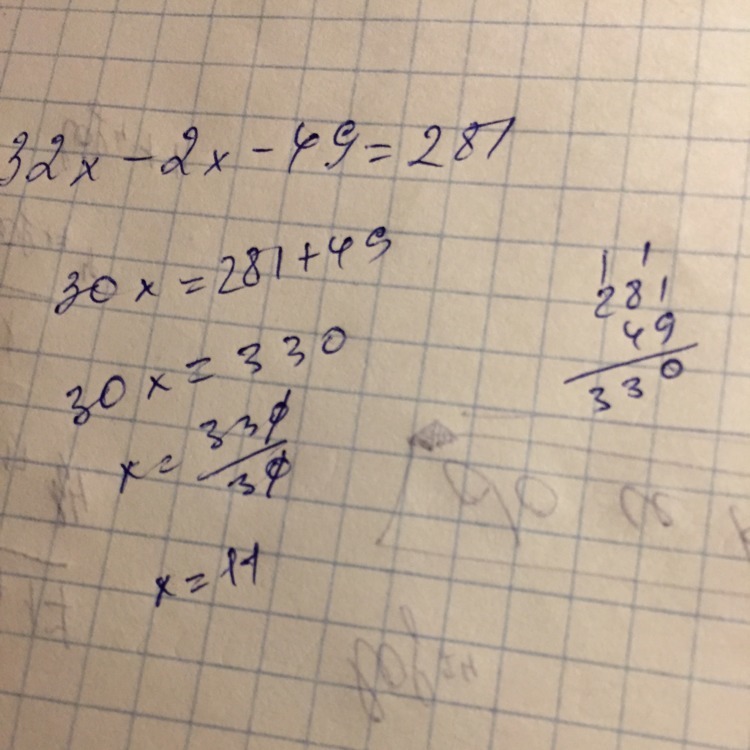 32x - 2x - 49 = 281
30x = 281 + 49
30x = 330
x = 330/30
x = 11
1 1
281
49
330